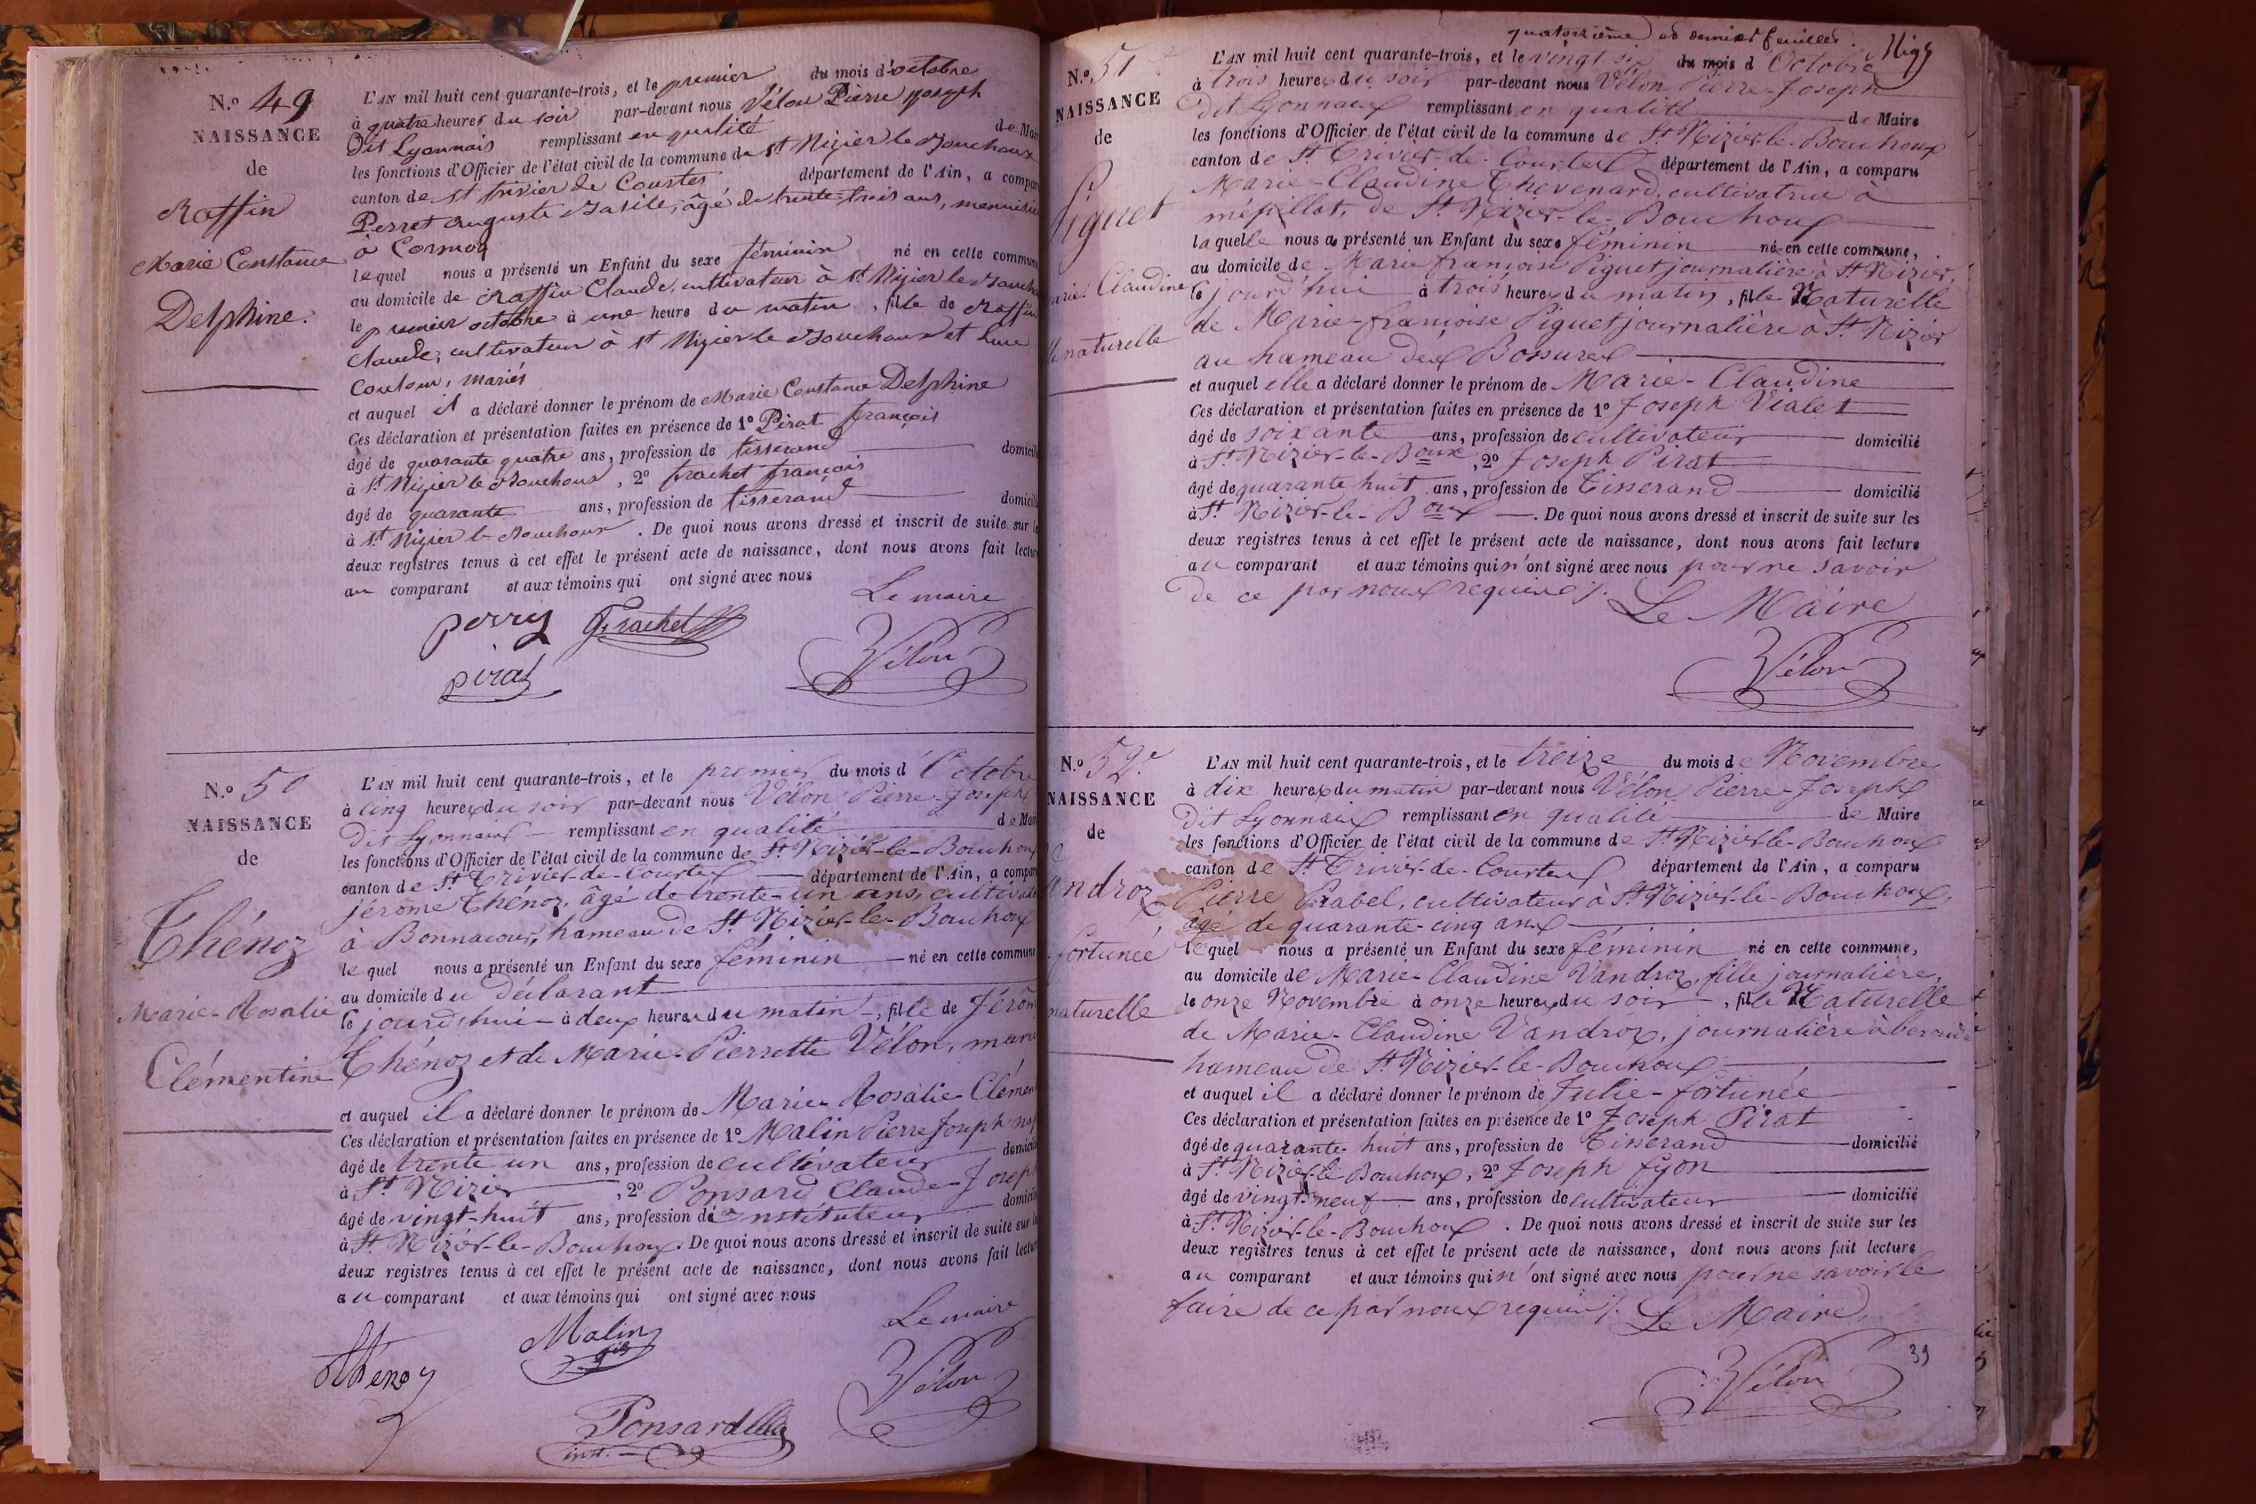 N.o 49
NAISSANCE
de
Raffin
Marie Constance
Delphine.
L'AN mil huit cent quarante-trois, et le premier du mois d'octobre
à quatre heures du soir par-devant nous Vélon Pierre joseph
Dit Lyonnais remplissant en qualité de Mai
les fonctions d'Officier de l'état civil de la commune de St Nizier le Bouchoux
canton de St trivier de Courtes département de l'Ain, a compar
Perret Auguste Basile, âgé de trente-trois ans, menuisie
à Cormoz
lequel nous a présenté un Enfant du sexe féminin né en cette commune
au domicile de Raffin Claude, cultivateur à St Nizier le Bouchou
le premier octobre à une heure du matin, fille de Raffin
Claude, cultivateur à St Nizier le Bouchoux et Luce
Couteur, mariés
et auquel il a déclaré donner le prénom de Marie Constance Delphine
Ces déclaration et présentation faites en présence de 1o Pirat françois
âgé de quarante quatre ans, profession de tisserand domicili
à St Nizier le Bouchoux, 2o frachet françois
âgé de quarante ans, profession de tisserand domicili
à St Nizier le Bouchoux. De quoi nous avons dressé et inscrit de suite sur le
deux registres tenus à cet effet le présent acte de naissance, dont nous avons fait lectur
au comparant et aux témoins qui ont signé avec nous
Le maire
frachet
pirat
Vélon
N.o 50
NAISSANCE
de
Thénoz
Marie-Rosalie
Clémentine
L'AN mil huit cent quarante-trois, et le premier du mois d'Octobre
à cinq heures du soir par-devant nous Vélon Pierre-Joseph
Dit Lyonnais remplissant en qualité de Mai
les fonctions d'Officier de l'état civil de la commune de St Nizier-le-Bouchoux
canton de St Trivier-de-Courtes département de l'Ain, a compar
jérôme Thénoz, âgé de trente-un ans, cultivate
à Bonnacour, hameau de St Nizier-le-Bouchoux
lequel nous a présenté un Enfant du sexe féminin né en cette commune
au domicile du déclarant
le jourd'hui à deux heures du matin, fille de Jérôm
Thénoz et de Marie-Pierrette Vélon, marié
et auquel il a déclaré donner le prénom de Marie-Rosalie-Clémen
Ces déclaration et présentation faites en présence de 1o Malin Pierre Joseph
âgé de trente un ans, profession de cultivateur domicili
à St Nizier, 2o Ponsard Claude-Josep
âgé de vingt-huit ans, profession d'instituteur domicili
à St Nizier-le-Bouchoux. De quoi nous avons dressé et inscrit de suite sur le
deux registres tenus à cet effet le présent acte de naissance, dont nous avons fait lectur
au comparant et aux témoins qui ont signé avec nous
Le maire
Thenoz
Malin
Vélon
Ponsard
inst.
quatorzième et dernier feuillet.
N.o 51
NAISSANCE
de
Piguet
arie Claudine
lle naturelle
L'AN mil huit cent quarante-trois, et le vingt six du mois d'Octobre
à trois heures du soir par-devant nous Vélon Pierre-Joseph
dit Lyonnais remplissant en qualité de Maire
les fonctions d'Officier de l'état civil de la commune de St Nizier-le-Bouchoux
canton de St Trivier-de-Courtes département de l'Ain, a comparu
Marie-Claudine Thevenard, cultivatrice à
mépillat, de St Nizier-le-Bouchoux
laquelle nous a présenté un Enfant du sexe féminin né en cette commune,
au domicile de Marie françoise Piguet journalière à St Nizier,
le jourd'hui à trois heures du matin, fille Naturelle
de Marie-françoise Piguet journalière à St Nizier
au hameau des Bossures
et auquel elle a déclaré donner le prénom de Marie-Claudine
Ces déclaration et présentation faites en présence de 1o Joseph Vialet
âgé de soixante ans, profession de cultivateur domicilié
à St Nizier-le-Boux, 2o Joseph Pirat
âgé de quarante huit ans, profession de Tisserand domicilié
à St Nizier-le-Boux. De quoi nous avons dressé et inscrit de suite sur les
deux registres tenus à cet effet le présent acte de naissance, dont nous avons fait lecture
au comparant et aux témoins qui n'ont signé avec nous pour ne savoir
de ce par nous requis ./.
Le Maire
Vélon
N.o 52.e
NAISSANCE
de
androz
fortunée
naturelle
L'AN mil huit cent quarante-trois, et le treize du mois de Novembre
à dix heures du matin par-devant nous Vélon Pierre-Joseph
Dit Lyonnais remplissant en qualité de Maire
les fonctions d'Officier de l'état civil de la commune de St Nizier-le-Bouchoux
canton de St Trivier-de-Courtes département de l'Ain, a comparu
Pierre Prabel, cultivateur à St Nizier-le-Bouchoux,
âgé de quarante-cinq ans
lequel nous a présenté un Enfant du sexe féminin né en cette commune,
au domicile de Marie-Claudine Vandroz, fille journalière,
le onze Novembre à onze heures du soir, fille Naturelle
de Marie-Claudine Vandroz, journalière à
hameau de St Nizier-le-Bouchoux
et auquel il a déclaré donner le prénom de Julie-fortunée
Ces déclaration et présentation faites en présence de 1o Joseph Pirat
âgé de quarante huit ans, profession de Tisserand domicilié
à St Nizier-le-Bouchoux, 2o Joseph fyon
âgé de vingt-neuf ans, profession de cultivateur domicilié
à St Nizier-le-Bouchoux. De quoi nous avons dressé et inscrit de suite sur les
deux registres tenus à cet effet le présent acte de naissance, dont nous avons fait lecture
au comparant et aux témoins qui n'ont signé avec nous pour ne savoir le
faire de ce par nous requis ./.
Le Maire
Vélon
39